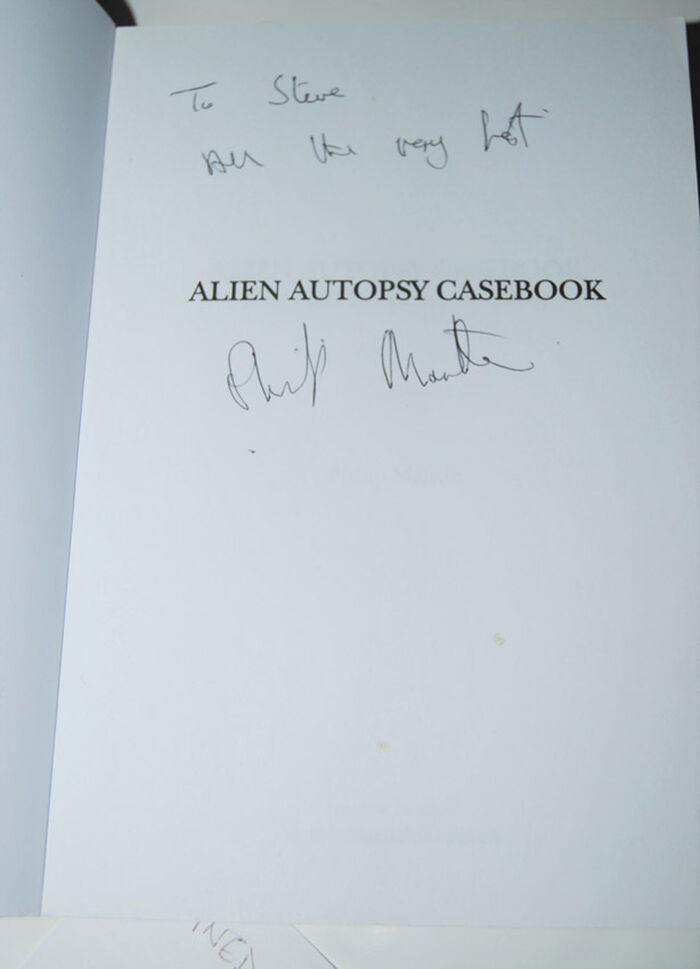 To Steve
All the very best
ALIEN AUTOPSY CASEBOOK
Philip Mantle
Philip Mantle